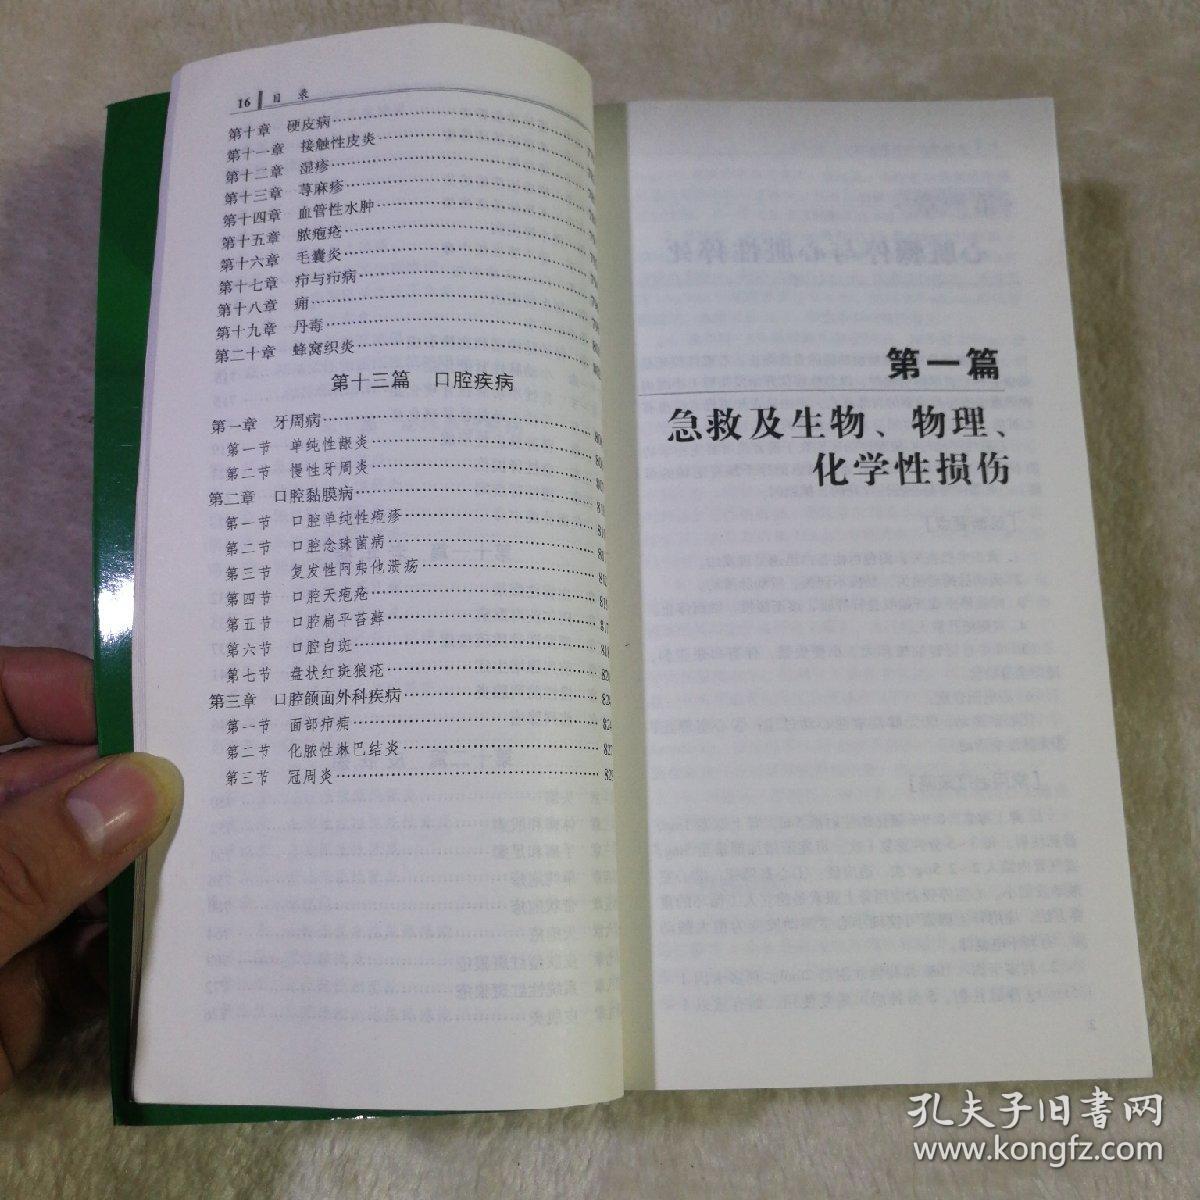 16 目 录
第十章 硬皮病
第十一章 接触性皮炎
第十二章 湿疹
第十三章 荨麻疹
第十四章 血管性水肿
第十五章 脓疱疮
第十六章 毛囊炎
第十七章 疖与疖病
第十八章 痈
第十九章 丹毒
第二十章 蜂窝织炎
第十三篇 口腔疾病
第一章 牙周病
第一节 单纯性龈炎
第二节 慢性牙周炎
第二章 口腔黏膜病
第一节 口腔单纯性疱疹
第二节 口腔念珠菌病
第三节 复发性阿弗他溃疡
第四节 口腔天疱疮
第五节 口腔扁平苔藓
第六节 口腔白斑
第七节 盘状红斑狼疮
第三章 口腔颌面外科疾病
第一节 面部疖痈
第二节 化脓性淋巴结炎
第三节 冠周炎
第一篇
急救及生物、物理、
化学性损伤
孔夫子旧书网
www.kongfz.com